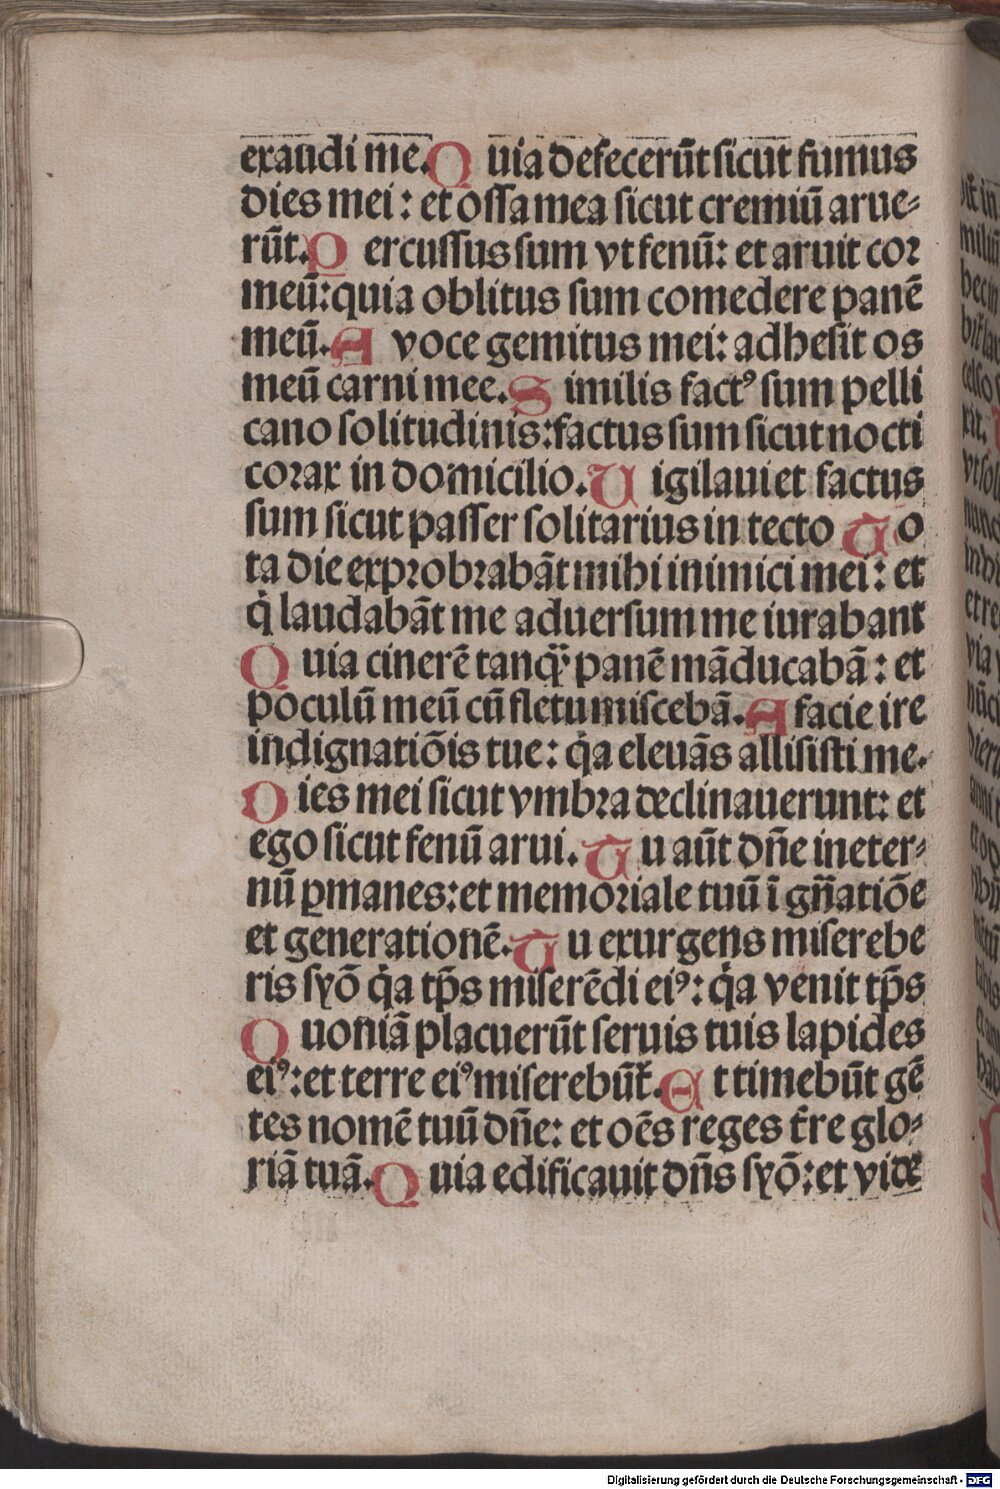 exaudi me. Quia defecerūt sicut fumus
dies mei: et ossa mea sicut cremiū arue⸗
rūt. Percussus sum vt fenū: et aruit cor
meū: quia oblitus sum comedere panē
meū. A voce gemitus mei: adhesit os
meū carni mee. Similis factꝰ sum pelli
cano solitudinis: factus sum sicut nocti
corax in domicilio. Uigilaui et factus
sum sicut passer solitarius in tecto To
ta die exprobrabāt mihi inimici mei: et
q̇ laudabāt me aduersum me iurabant
Quia cinerē tanq̄ꝫ panē māducabā: et
poculū meū cū fletu miscebā. A facie ire
indignatiōis tue: q̇a eleuās allisisti me.
Dies mei sicut vmbra declinauerunt: et
ego sicut fenū arui. Tu aūt dn̄e in eter⸗
nū ꝑmanes: et memoriale tuū ī gn̄atiōe
et generationē. Tu exurgens miserebe
ris syō q̇a tp̄s miserēdi eiꝰ: q̇a venit tp̄s
Quoniā placuerūt seruis tuis lapides
eiꝰ: et terre eiꝰ miserebūt᷑. Et timebūt gē
tes nomē tuū dn̄e: et oēs reges t᷑re glo⸗
riā tuā. Quia edificauit dn̄s syō: et vide
Digitalisierung gefördert durch die Deutsche Forschungsgemeinschaft - DFG